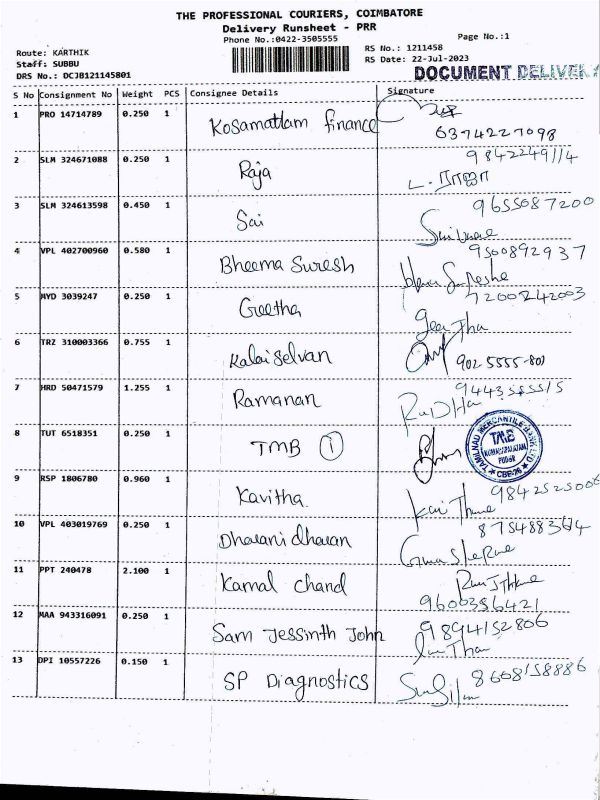 THE PROFESSIONAL COURIERS, COIMBATORE
Delivery Runsheet - PRR
Phone No.:0422-3505555
Page No.:1
Route: KARTHIK
RS No.: 1211458
Staff: SUBBU
RS Date: 22-Jul-2023
DRS No.: DCJB121145801
DOCUMENT DELIVER
S No Consignment No Weight PCS Consignee Details Signature
1 PRO 14714789 0.250 1 Kosamatlam finance 6374227098
2 SLM 324671088 0.250 1 Raja 9842249114
ராஜா
3 SLM 324613598 0.450 1 Sai 9655087200
4 VPL 402700960 0.580 1 Bheema Suresh 9500892937
5 MYD 3039247 0.250 1 Geetha 7200242003
Gee Tha
6 TRZ 310003366 0.755 1 Kalaiselvan 902 5555-801
7 HRD 50471579 1.255 1 Ramanan
8 TUT 6518351 0.250 1 TMB 1
TAMILNAD MERCANTILE BANK LTD
TMB
9 RSP 1806780 0.960 1 Kavitha
10 VPL 403019769 0.250 1 Dharanidharan
11 PPT 240478 2.100 1 Kamal chand
9600356421
12 MAA 943316091 0.250 1 Sam Jessinth John 9894152806
13 DPI 10557226 0.150 1 SP Diagnostics 8608158886